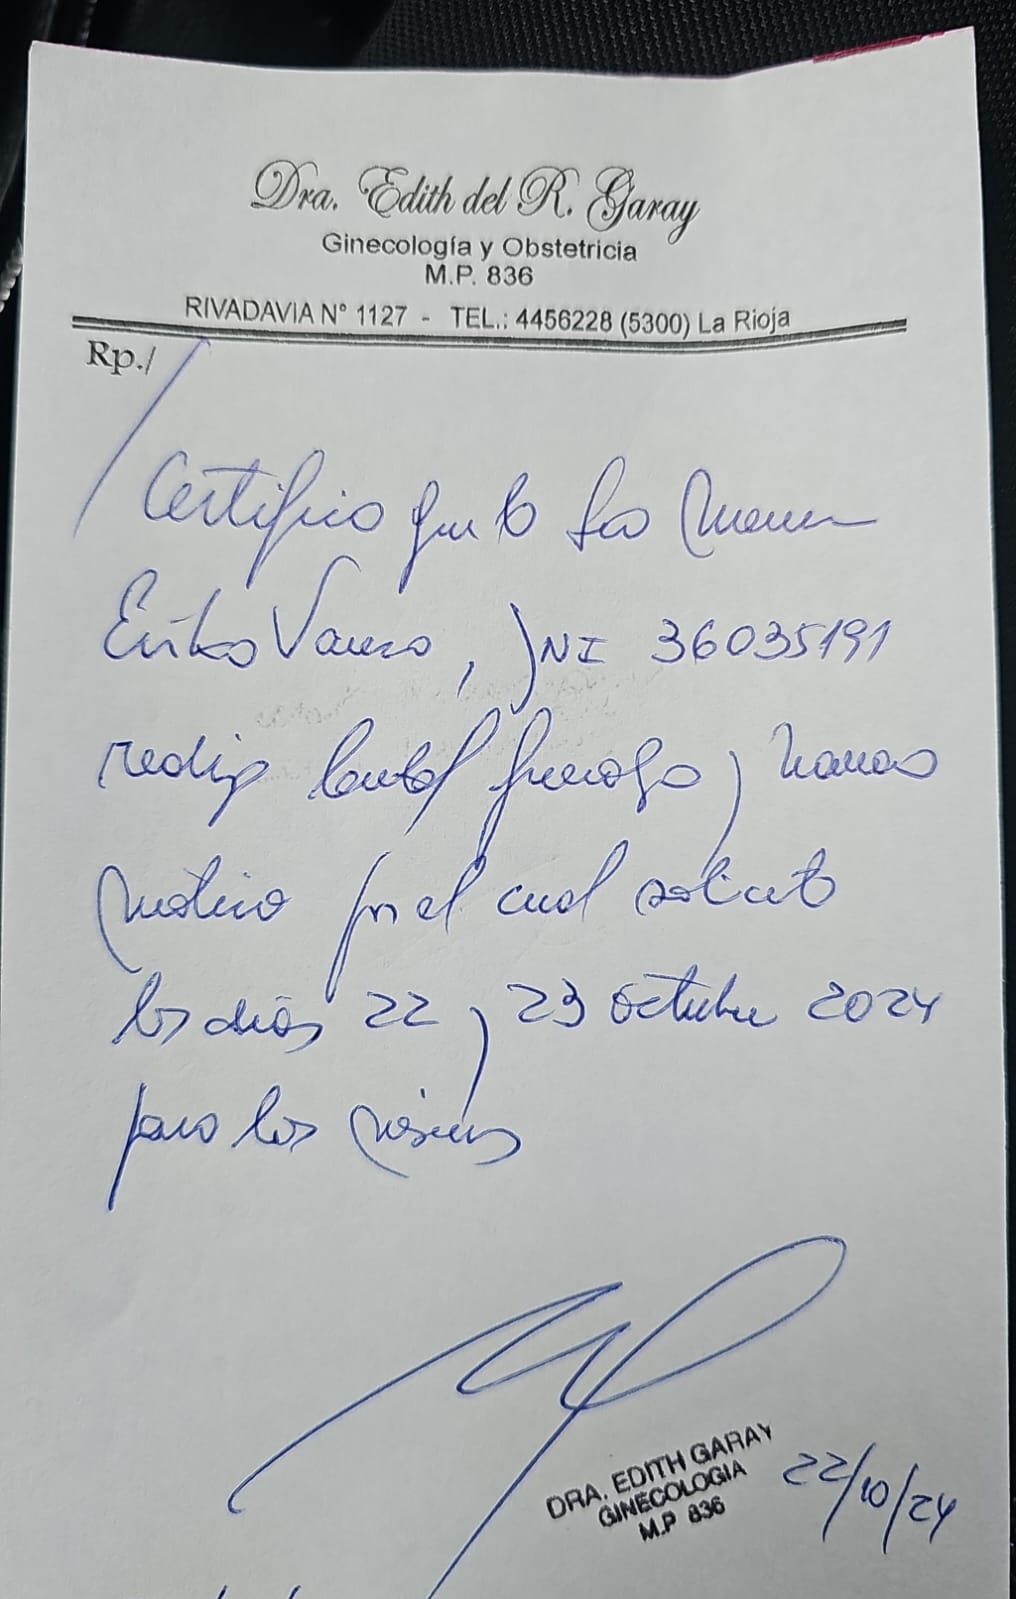 Dra. Edith del R. Garay
Ginecología y Obstetricia
M.P. 836
RIVADAVIA N° 1127 - TEL.: 4456228 (5300) La Rioja
Rp./
Certifico que la Sra
Erika Vanesa, DNI 36035191
realiza control y
motivo por el cual solicito
los días 22 y 23 octubre 2024
para los mismos
DRA. EDITH GARAY
GINECOLOGIA
M.P 836
22/10/24